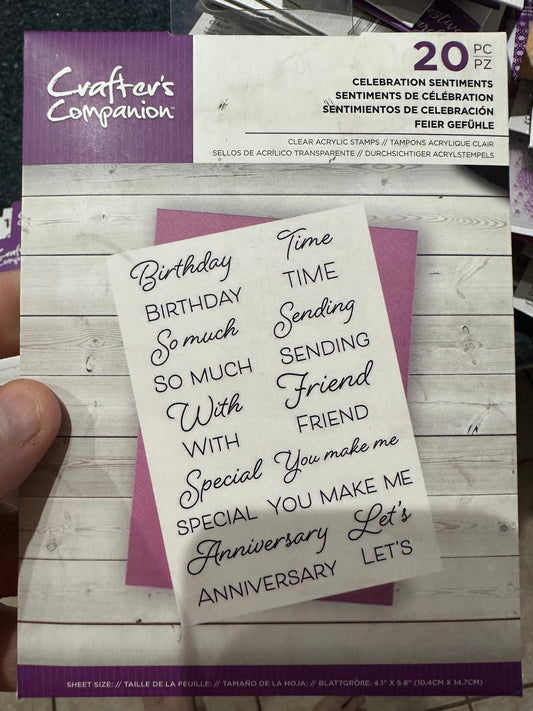 Crafter's
Companion™
20 PC
PZ
CELEBRATION SENTIMENTS
SENTIMENTS DE CÉLÉBRATION
SENTIMIENTOS DE CELEBRACIÓN
FEIER GEFÜHLE
CLEAR ACRYLIC STAMPS // TAMPONS ACRYLIQUE CLAIR
SELLOS DE ACRÍLICO TRANSPARENTE // DURCHSICHTIGER ACRYLSTEMPELS
Birthday
BIRTHDAY
So much
SO MUCH
With
WITH
Special
SPECIAL
Anniversary
ANNIVERSARY
Time
TIME
Sending
SENDING
Friend
FRIEND
You make me
YOU MAKE ME
Let's
LET'S
SHEET SIZE: // TAILLE DE LA FEUILLE: // TAMAÑO DE LA HOJA: // BLATTGRÖßE: 4.1" X 5.8" (10.4CM X 14.7CM)